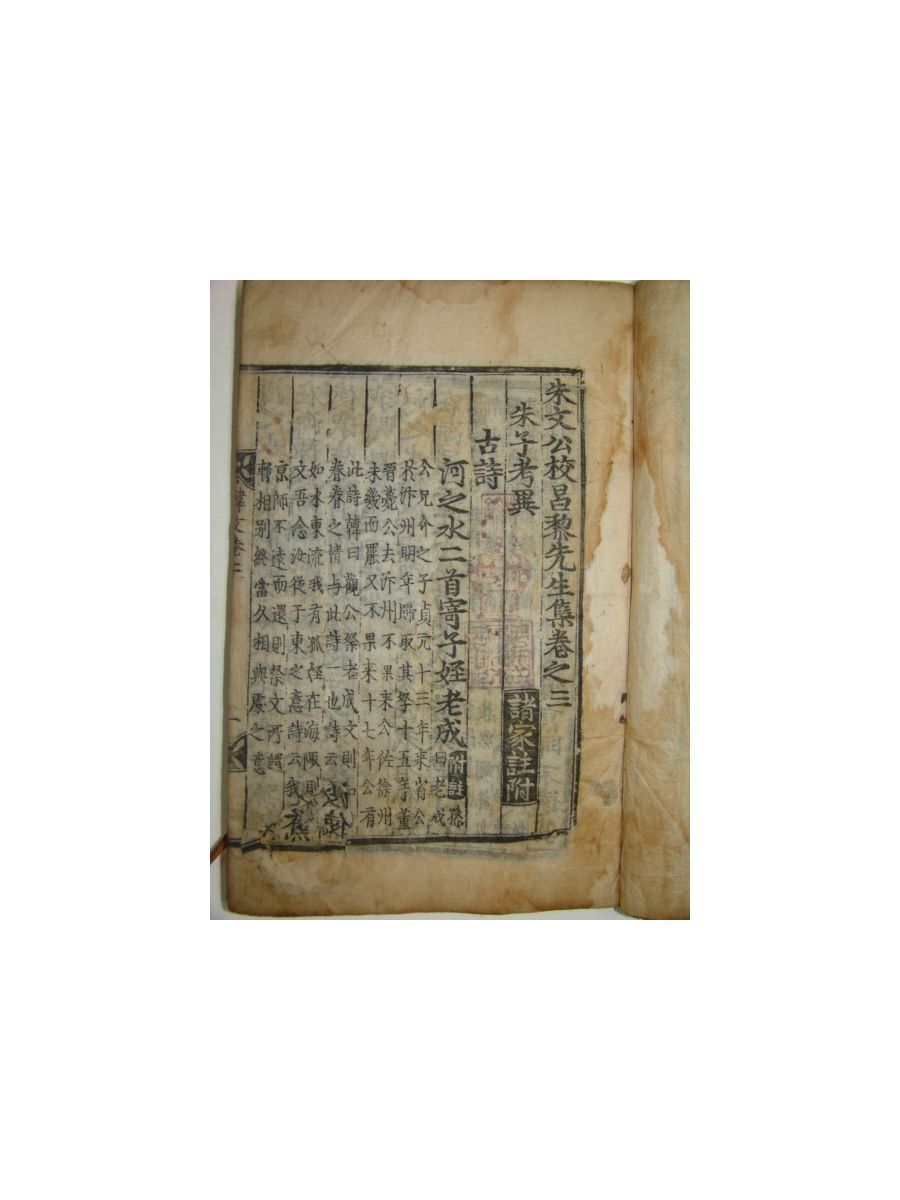 朱文公校昌黎先生集卷之三
朱子考異 諸家註附
古詩
河之水二首寄子姪老成 附註 孫曰老成
公兄介之子貞元十三年來省公
於汴州明年歸取其孥十五年董
晉薨公去汴州不果來公佐徐州
未幾而罷又不果來十七年公有
此詩韓曰觀公祭老成文則知
眷眷之情与此詩一也詩云
如水東流我有孤姪在海陬則
文吾念汝從于東之意詩云我
京師不遠而還則祭文所謂
暫相別終當久相與處之意
韓文卷三